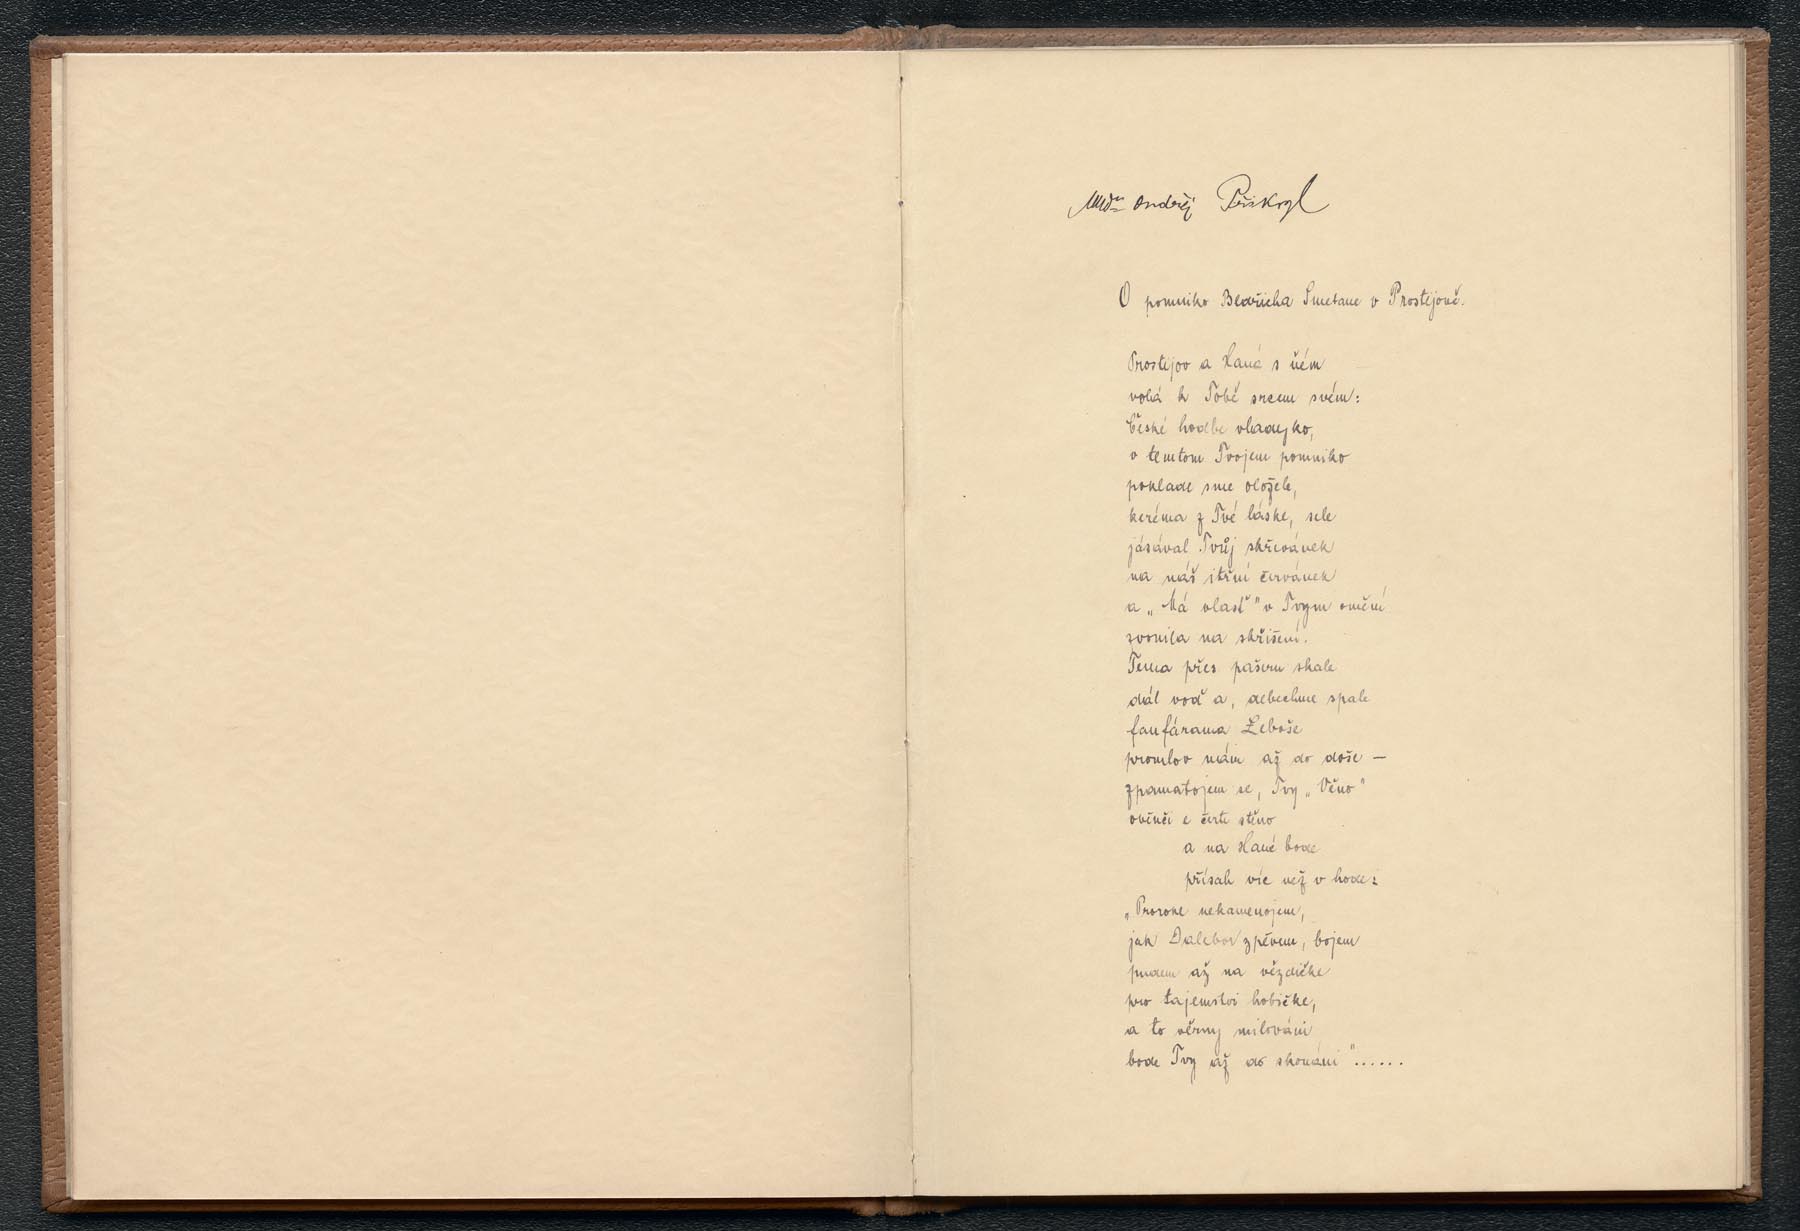 MUDr Ondřej Přikryl
O pomniko Bedřicha Smetane v Prostějově.
Prostijov a Haná s ňém
volá k Tobě srcem svém:
České hodbe vladyko,
v temtom Tvojem pomniko
poklade sme oložele,
keréma z Tvé láske, sele
jásával Tvůj skřivánek
na náš itřní červánek
a „Má vlasť" v Tvym omění
zvonila na skřišení.
Tema přes pašvm skale
dál voď a, debechme spale
fanfárama Leboše
promlov nám až do doše —
zpamatojem se, Tvy „Věno"
občučí e čertu stěno
a na Hané bode
přísah víc než v hode:
„Proroke nekamenojem,
jak Dalebor zpěvem, bojem
pudem až na vězdičke
pro tajemství hobičke,
a to věrny milováni
bode Tvy až do skonáni"......